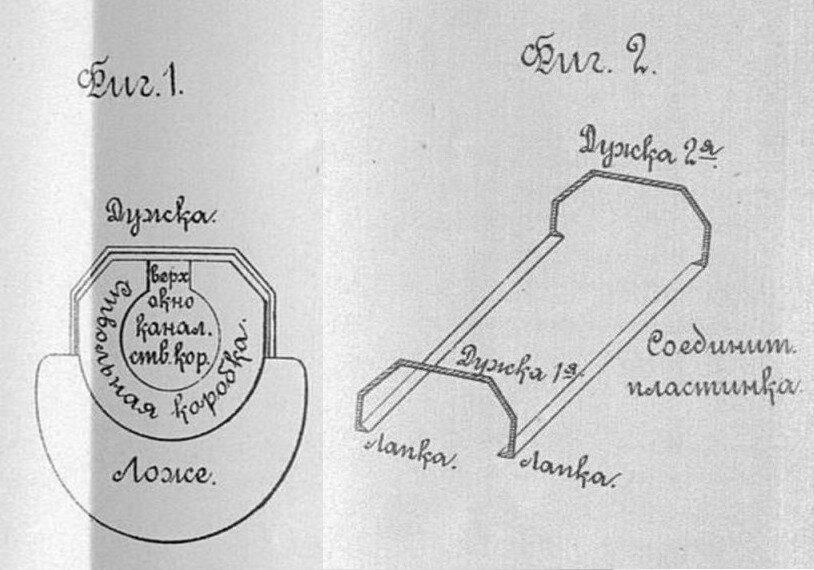 Фиг. 1.
Дужка.
верх
окно
канал.
ств. кор.
Ствольная коробка.
Ложе.
Фиг. 2.
Дужка 2я.
Дужка 1я.
Соединит.
пластинка.
Лапка.
Лапка.